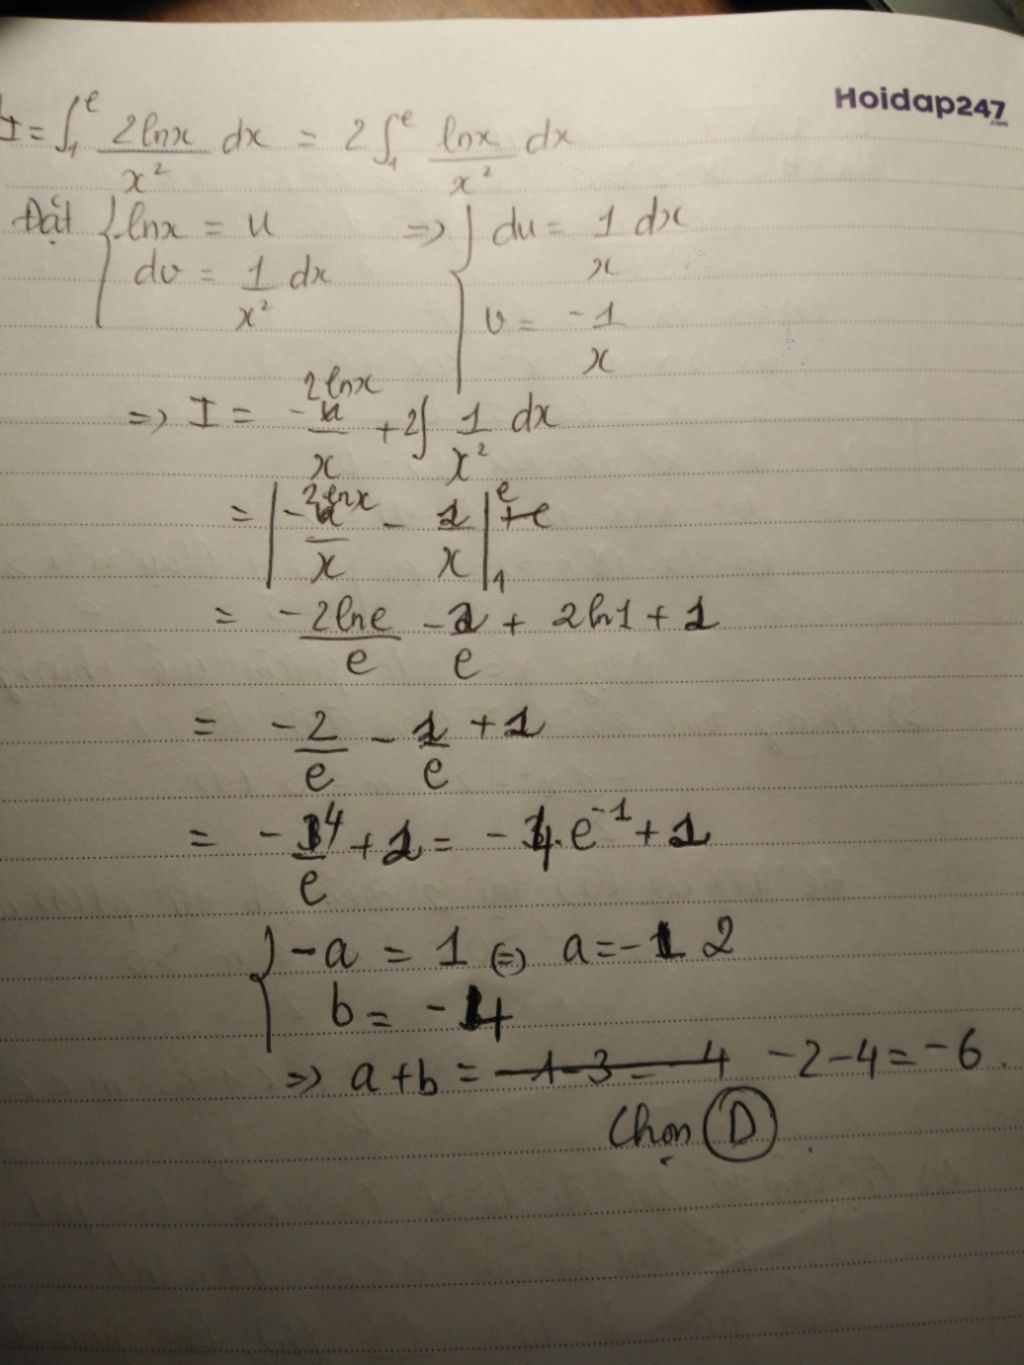 Hoidap247
.com
I = ∫₁ᵉ 2lnx/x² dx = 2∫₁ᵉ lnx/x² dx
Đặt { lnx = u => { du = 1/x dx
dv = 1/x² dx
v = -1/x
=> I = -2lnx/x + 2∫ 1/x² dx
= | -2lnx/x - 2/x |₁ᵉ
= -2lne/e - 2/e + 2ln1 + 2
= -2/e - 2/e + 2
= -4/e + 2 = -4.e⁻¹ + 2
{ -a = 1 (=) a = - 2
b = -4
=> a+b = -2-4 = -6.
Chọn D.